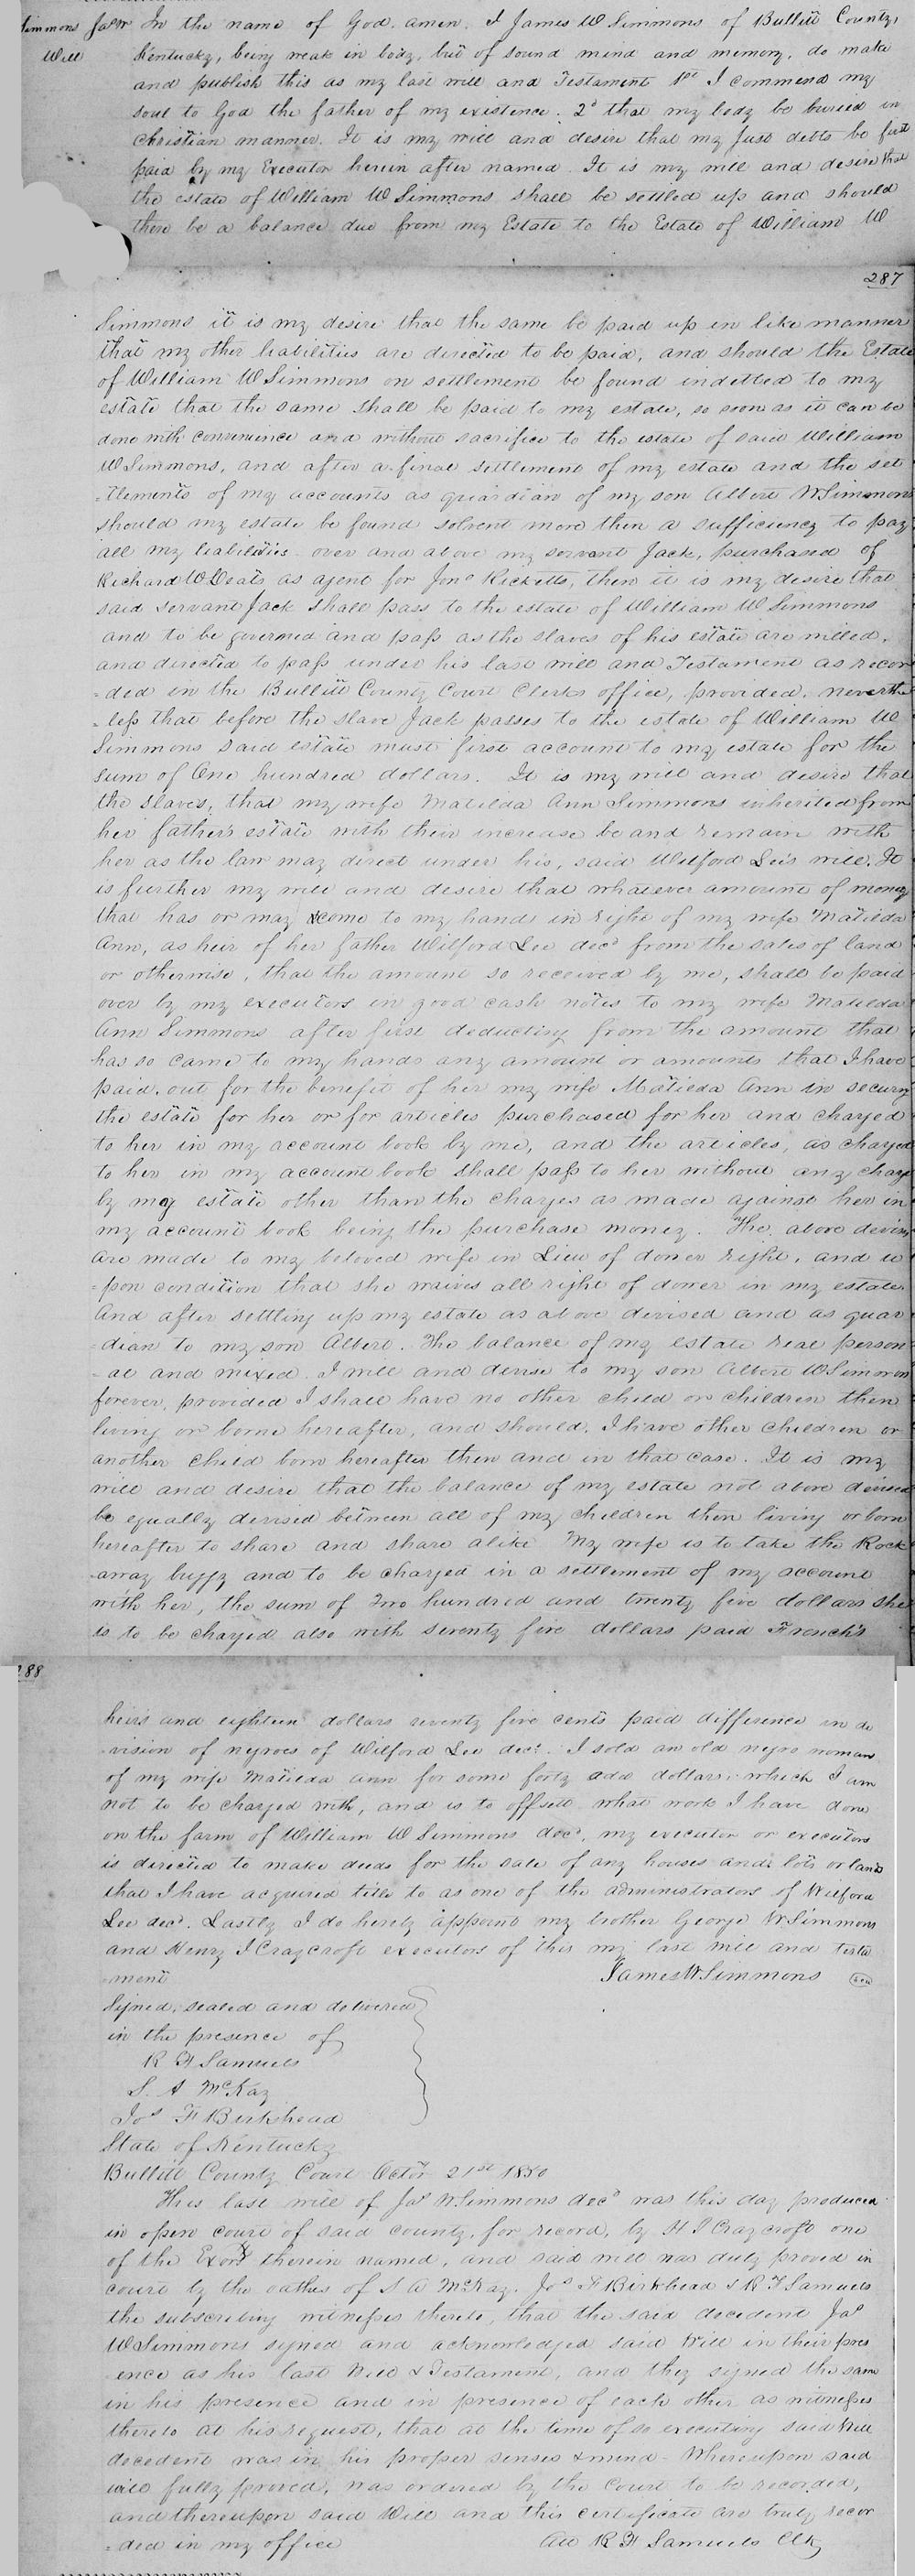 Simmons Jas W In the name of God. amen. I James W Simmons of Bullitt County,
Will Kentucky, being weak in body, but of sound mind and memory, do make
and publish this as my last will and Testament 1st I commend my
soul to God the father of my existence. 2d that my body be buried in
Christian manner. It is my will and desire that my Just debts be first
paid by my Executor herein after named. It is my will and desire that
the estate of William W Simmons shall be settled up and should
there be a balance due from my Estate to the Estate of William W
287
Simmons it is my desire that the same be paid up in like manner
that my other liabilities are directed to be paid, and should the Estate
of William W Simmons on settlement be found indetted to my
estate that the same shall be paid to my estate, so soon as it can be
done with convenience and without sacrifice to the estate of said William
W Simmons, and after a final settlement of my estate and the set
-tlements of my accounts as guardian of my son Albert W Simmons
should my estate be found solvent more then a sufficiency to pay
all my liabilities over and above my servant Jack, purchased of
Richard W Deats as agent for Jno Ricketts, then it is my desire that
said servant Jack shall pass to the estate of William W Simmons
and to be governed and pass as the slaves of his estate are willed,
and directed to pass under his last will and Testament as recor
-ded in the Bullitt County Court Clerks office, provided, neverthe
-less that before the slave Jack passes to the estate of William W
Simmons said estate must first account to my estate for the
sum of One hundred dollars. It is my will and desire that
the slaves, that my wife Matilda Ann Simmons inherited from
her father's estate with their increase be and remain with
her as the law may direct under his, said Wilford Lee's will. It
is further my will and desire that whatever amount of money
that has or may come to my hands in right of my wife Matilda
Ann, as heir of her father Wilford Lee decd from the sales of land
or otherwise, that the amount so received by me, shall be paid
over by my executors in good cash notes to my wife Matilda
Ann Simmons after first deducting from the amount that
has so came to my hands any amount or amounts that I have
paid out for the benefit of her my wife Matilda Ann in securing
the estate for her or for articles purchased for her and charged
to her in my account book by me, and the articles, as charged
to her in my account book shall pass to her without any charge
by my estate other than the charges as made against her in
my account book being the purchase money. The above devises
are made to my beloved wife in Lieu of dower right, and u
-pon condition that she waives all right of dower in my estate.
And after settling up my estate as above devised and as guar
-dian to my son Albert. The balance of my estate real person
-al and mixed I will and devise to my son Albert W Simmons
forever, provided I shall have no other child or children then
living or borne hereafter, and should I have other children or
another child born hereafter then and in that case. It is my
will and desire that the balance of my estate not above devised
be equally devised between all of my children then living or born
hereafter to share and share alike My wife is to take the Rock
-away buggy and to be charged in a settlement of my account
with her, the sum of Two hundred and twenty five dollars she
is to be charged also with seventy five dollars paid French's
288
heirs and eighteen dollars seventy five cents paid difference in di
-vision of negroes of Wilford Lee decd. I sold an old negro woman
of my wife Matilda Ann for some forty odd dollars, which I am
not to be charged with, and is to offsett what work I have done
on the farm of William W Simmons decd, my executor or executors
is directed to make deeds for the sale of any houses and lots or lands
that I have acquired title to as one of the administrators of Wilford
Lee decd. Lastly I do hereby appoint my brother George W Simmons
and Henry I Craycroft executors of this my last will and testa
-ment James W Simmons Seal
Signed, sealed and delivered
in the presence of
R F Samuels
S. A McKay
Jos F Birkhead
State of Kentucky
Bullitt County Court Octor 21st 1850
This last will of Jas W Simmons decd was this day produced
in open court of said county, for record, by H I Craycroft one
of the Exors therein named, and said will was duly proved in
court by the oathes of S A McKay. Jos F Birkhead & R F Samuels
the subscribing witnesses thereto, that the said decedent Jas
W Simmons signed and acknowledged said Will in their pres
-ence as his last Will & Testament, and they signed the same
in his presence and in presence of each other as witnesses
thereto at his request, that at the time of so executing said Will
decedent was in his proper senses & mind - Whereupon said
will fully proved, was ordered by the Court to be recorded,
and thereupon said Will and this certificate are truly recor
-ded in my office Att R F Samuels Clk